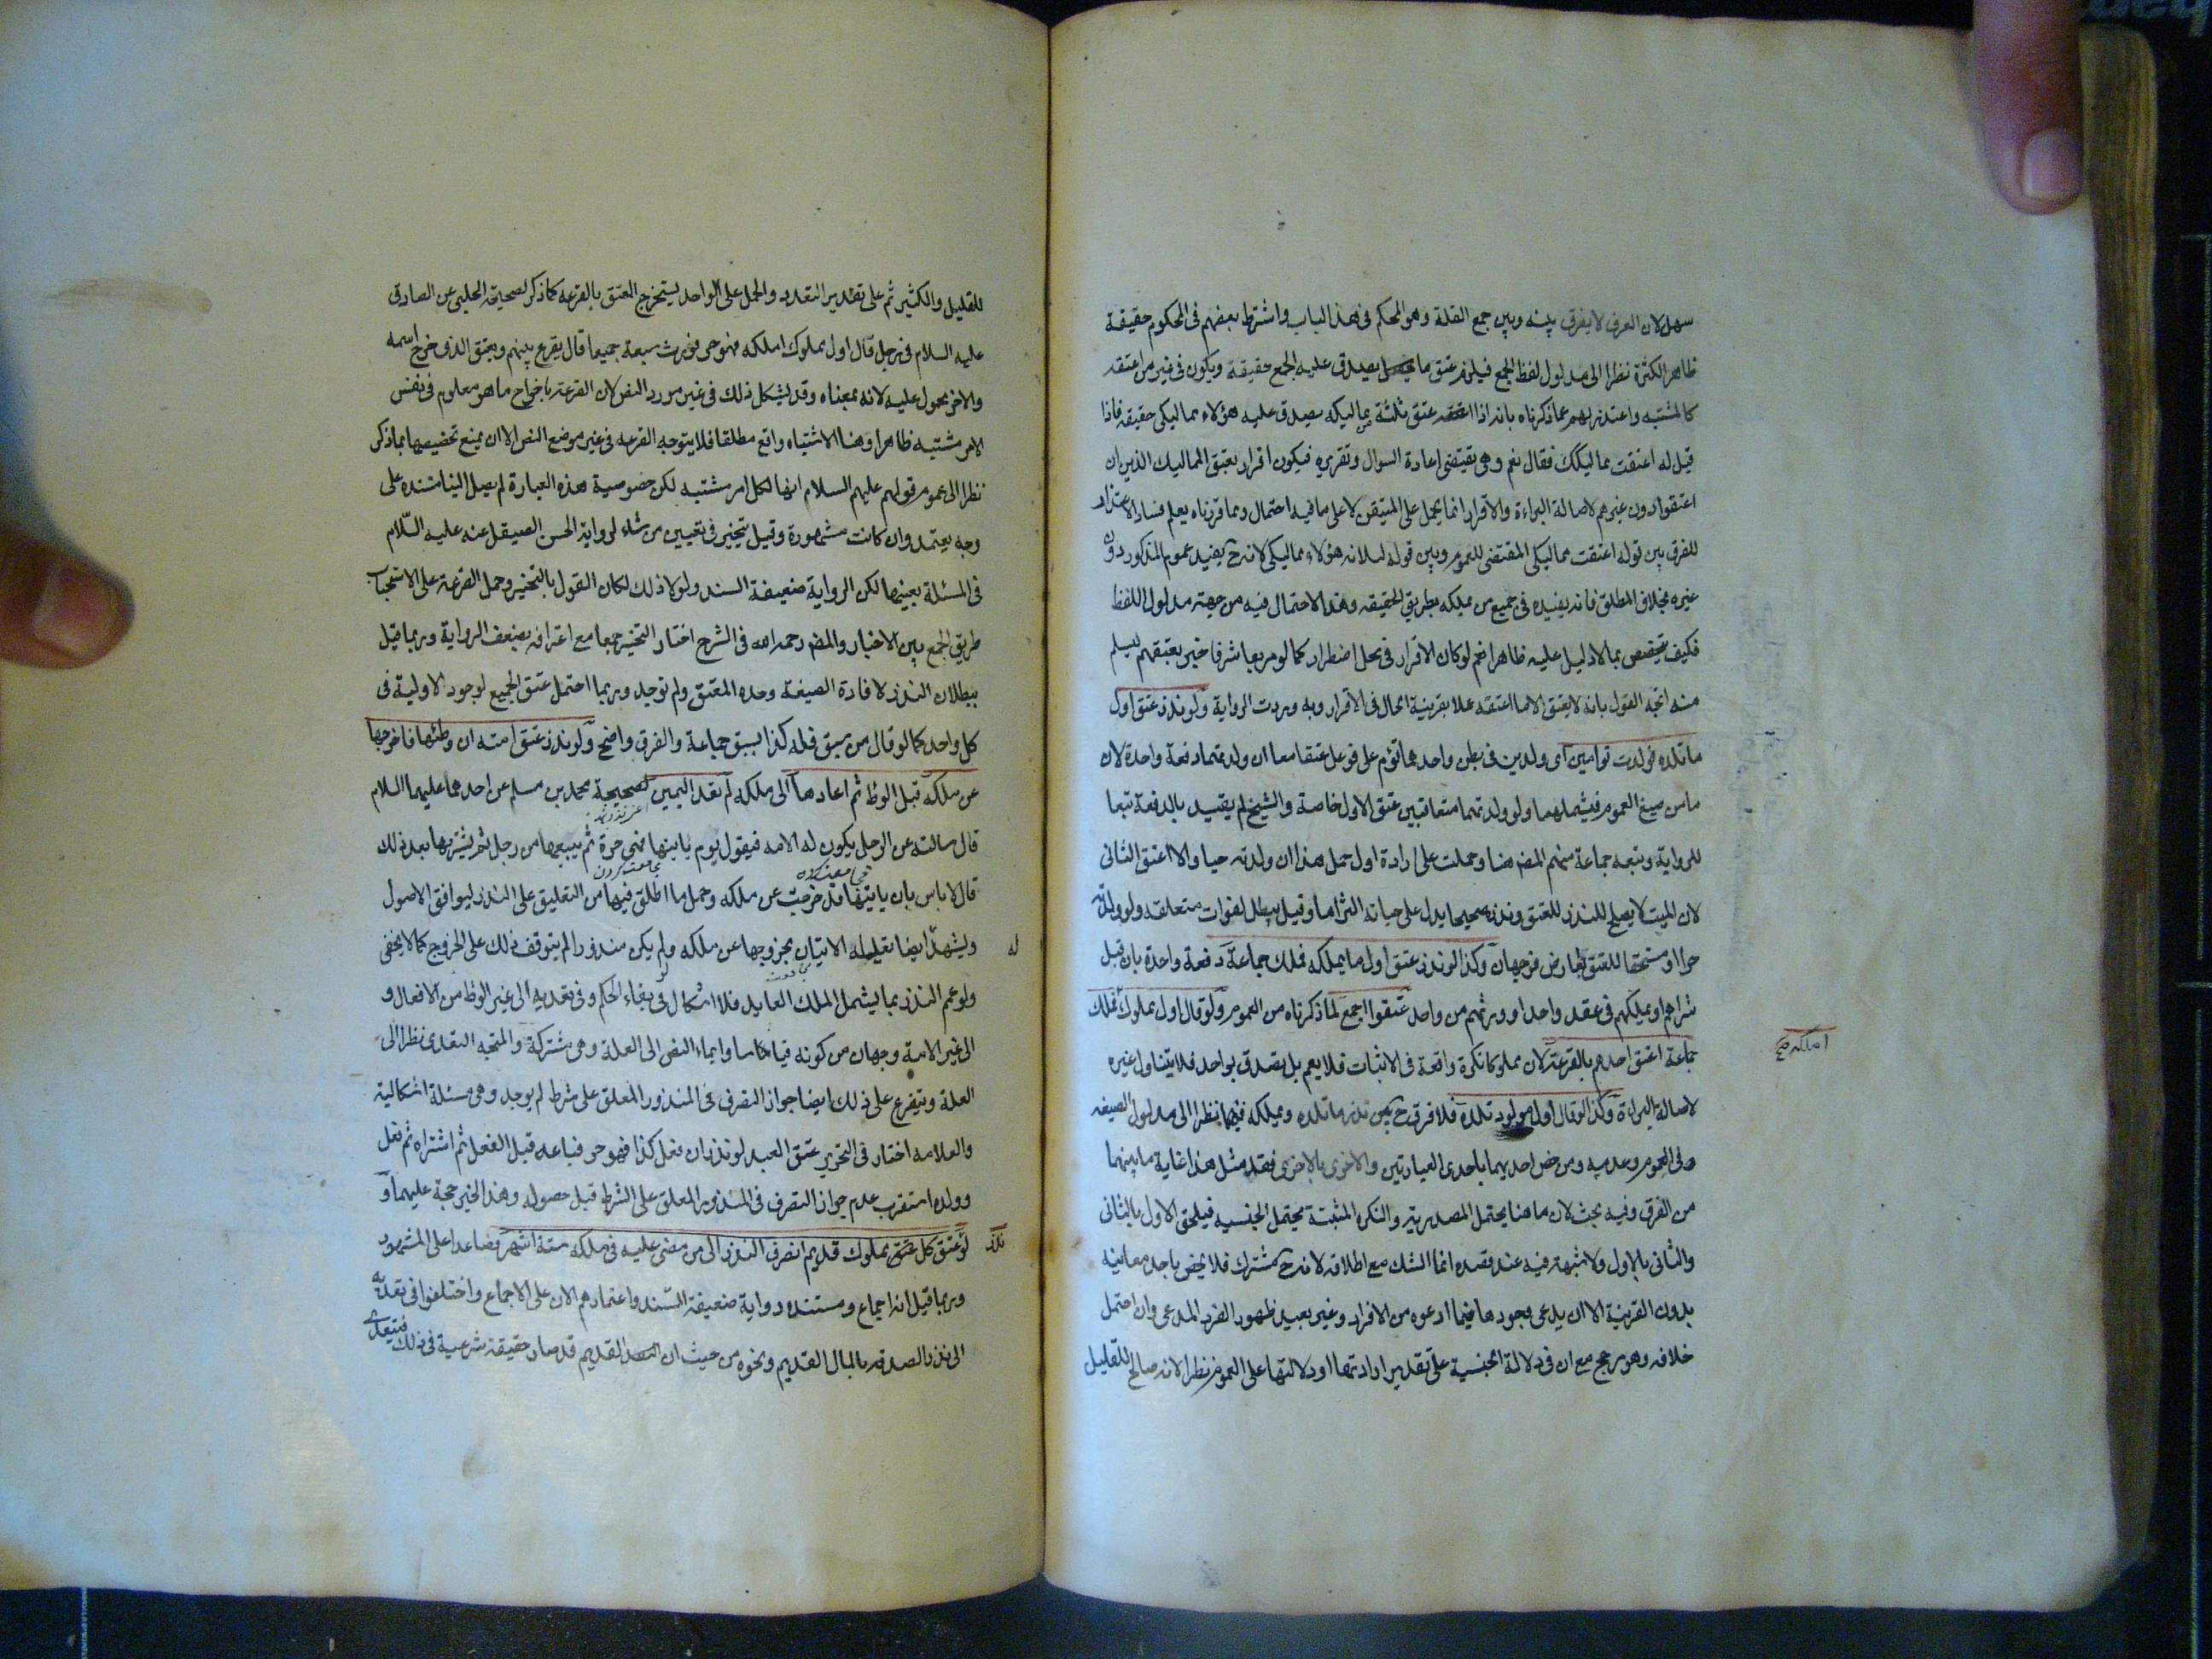 سهل لان العرف لا يفرق بينه وبين جمع القلة وهو المحكم فى هذا الباب واشترط بعضهم فى المحكوم حقيقة
ظاهرا الكثرة نظرا الى مدلول لفظ الجمع فيلزم عتق ما يصدق عليه الجمع حقيقة ويكون فى غير من اعتقه
كالمشتبه واعتذر لهم عما ذكرناه بانه اذا اعتقه عتق ثلثة من مماليكه يصدق عليه هؤلاء مماليكى حقيقه فاذا
قيل له اعتقت مماليكك فقال نعم وهى تقتضى اعادة السوال وتقريره فيكون اقرار بعتق المماليك الذين ان
اعتقوا دون غيرهم لاصالة البراءة والاقرار انما يحمل على المتيقن لا على ما فيه احتمال ومما قررناه يعلم فساد الاعتذار
للفرق بين قوله اعتقت مماليكى المقتضى للعموم وبين قوله لبلانه هؤلاء مماليكى لانه ح يفيد عموم المذكور دون
غيره بخلاف المطلق فانه يفيده فى جميع من يملكه بطريق الحقيقه وهذا الاحتمال فيه من جهته مدلول اللفظ
فكيف يتخصص بما لا دليل عليه ظاهرا نعم لو كان الاقرار فى محل اضطرار كما لو مر بعاشر فاخبر بعتقهم ليسلم
منه اتجه القول بانه لا يعتق الا ما اعتقه عملا بقرينة الحال فى الاقرار وبه وردت الرواية ولو نذر عتق اول
ما تلده فولدت توامين اى ولدين فى بطن واحد هما توم على فوعل عتقا معا ان ولدتهما دفعة واحدة لان
ما من صيغ العموم فيشملهما ولو ولدتهما متعاقبين عتق الاول خاصة والشيخ لم يقيد بالدفعة تبعا
للرواية وتبعه جماعة منهم المص هنا وحملت على ارادة اول حمل هذا ان ولدته حيا والا اعتق الثانى
لان الميت لا يصلح للنذر للعتق ونذره صحيحا يدل على حياته التزاما وقيل يبطل لفوات متعلقه ولو ولدته
حرا او مستحقا للعتق لعارض فوجهان وكذا لو نذر عتق اول ما يملكه فملك جماعة دفعة واحدة بان قبل
شراهم او تملكهم فى عقد واحد او ورثهم من واحد عتقوا اجمع لما ذكرناه من العموم ولو قال اول مملوك فملك
املكه صح
جماعة اعتق احدهم بالقرعة لان مملوكا نكرة واقعة فى الاثبات فلا يعم بل يصدق بواحد فلا يتناول غيره
لاصالة البراءة وكذا لو قال اول مولود تلده فلا فرق ح بين نذر ما تلده ويملكه فيهما نظرا الى مدلول الصيغه
فى العموم وعدمه ومن خص احديهما باحدى العبارتين والاخرى بالاخرى فقد مثل هذا غاية ما بينهما
من الفرق وفيه بحث لان ما هنا يحتمل المصدرية والنكره المثبتة يحتمل الجنسيه فيلحق الاول بالثانى
والثانى بالاول ولا شبهة فيه عند قصده انما الشك مع اطلاقه لانه ح مشترك فلا يخص باحد معانيه
بدون القرينة الا ان يدعى وجودها فيما ادعوه من الافراد وغير بعيد ظهور الفرد المدعى وان احتمل
خلافه وهو مرجح مع ان فى دلالة الجنسية على تقدير ارادتها او دلالتها على العموم نظرا لانه صالح للقليل
للقليل والكثير ثم على تقدير التعدد والحمل على الواحد يستخرج العتق بالقرعه كما ذكر لصحيحة الحلبى عن الصادق
عليه السلام فى رجل قال اول مملوك املكه فهو حر فورث سبعة جميعا قال يقرع بينهم ويعتق الذى خرج اسمه
والاخر محمول عليه لانه بمعناه وقد يشكل ذلك فى غير مورد النص لان القرعة باخراج ما هو معلوم فى نفس
الامر مشتبه ظاهرا وهنا الاشتباه واقع مطلقا فلا يتوجه القرعه فى غير موضع النص الا ان يمنع تخصيصها بما ذكر
نظرا الى عموم قولهم عليهم السلام انها لكل امر مشتبه لكن خصوصية هذه العبارة لم يصل الينا مستنده على
وجه يعتمد وان كانت مشهورة وقيل يتخير فى تعيين من شاء لرواية الحسن الصيقل عنه عليه السلام
فى المسئلة بعينها لكن الرواية ضعيفة السند ولولا ذلك لكان القول بالتخير وحمل القرعة على الاستحباب
طريق الجمع بين الاخبار والمص رحمه الله فى الشرح اختار التخير جمعا مع اعترافه بضعف الرواية وربما قيل
ببطلان النذر لافادة الصيغة وحدة المعتق ولم توجد وربما احتمل عتق الجميع لوجود الاولية فى
كل واحد كما لو قال من سبق فله كذا فسبق جماعة والفرق واضح ولو نذر عتق امته ان وطئها فاخرجها
عن ملكه قبل الوطء ثم اعادها الى ملكه لم تعد اليمين لصحيحة محمد بن مسلم عن احدهما عليهما السلام
قال سالته عن الرجل يكون له الامه فيقول يوم ياتيها فهى حرة ثم يبيعها من رجل ثم يشتريها بعد ذلك
مجامعت كردن
قال لا باس بان ياتيها قد خرجت عن ملكه وحمل ما اطلق فيها من التعليق على النذر ليوافق الاصول
له
ويشهد ايضا تعليله الاتيان بخروجها عن ملكه ولو لم يكن منذورا لم يتوقف ذلك على الخروج كما لا يخفى
ولو عمم النذر بما يشمل الملك العايد فلا اشكال فى بقاء الحكم وفى تعديه الى غير الوطء من الافعال و
الى غير الامة وجهان من كونه قياسا وايماء النص الى العلة وهى مشتركة والمتجه التعدى نظرا الى
العلة ويتفرع على ذلك ايضا جواز التصرف فى المنذور المعلق على شرط لم يوجد وهى مسئلة اشكالية
والعلامه اختار فى التحرير عتق العبد لو نذر ان فعل كذا فهو حر فباعه قبل الفعل ثم اشتراه ثم فعل
وولده استقرب عدم جواز التصرف فى المنذور المعلق على الشرط قبل حصوله وهذا الخبر حجة عليهما و
نذر
لو عتق كل مملوك قديم انصرف النذر الى من مضى عليه فى ملكه ستة اشهر فصاعدا على المشهور
وربما قيل انه اجماع ومستنده رواية ضعيفة السند واعتمادهم الان على الاجماع واختلفوا فى تعديه
الى نذر الصدقة بالمال القديم ونحوه من حيث ان القديم قد صار حقيقة شرعية فى ذلك فيتعدى